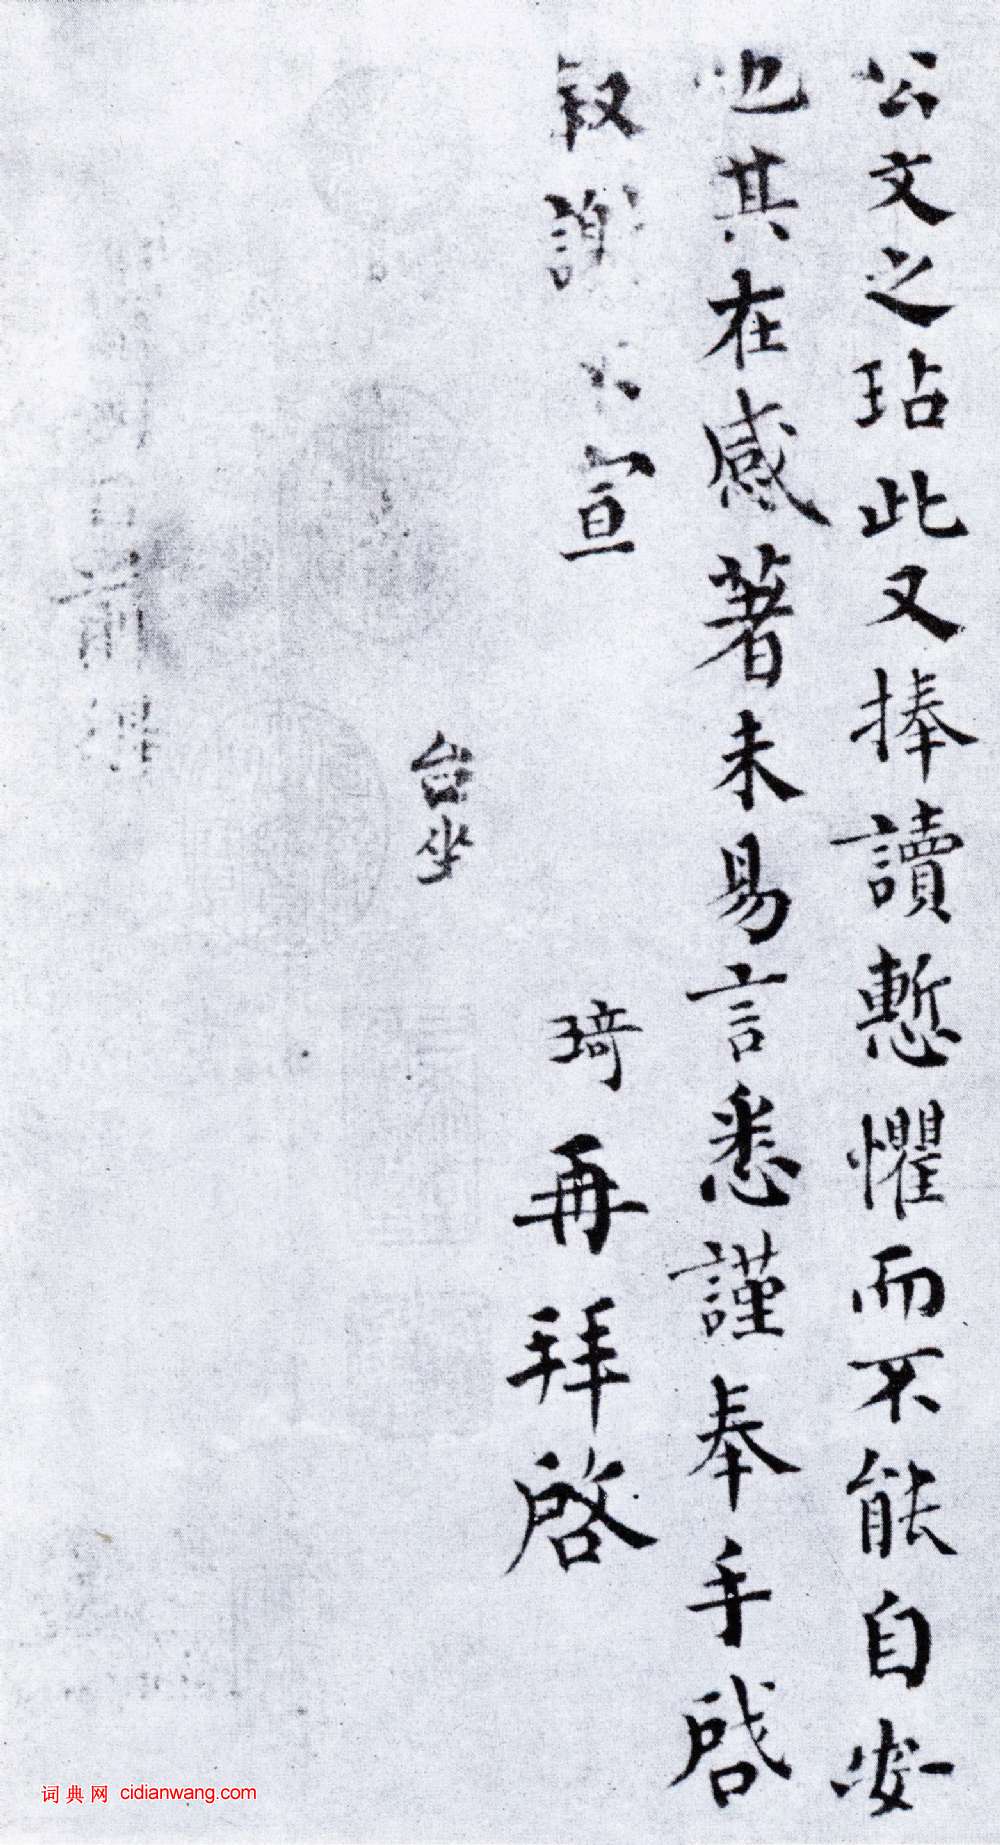 公文之玷此又捧讀慙懼而不能自安
也其在感著未易言悉謹奉手啓
叙謝不宣 琦再拜啓
台坐
词典网 cidianwang.com